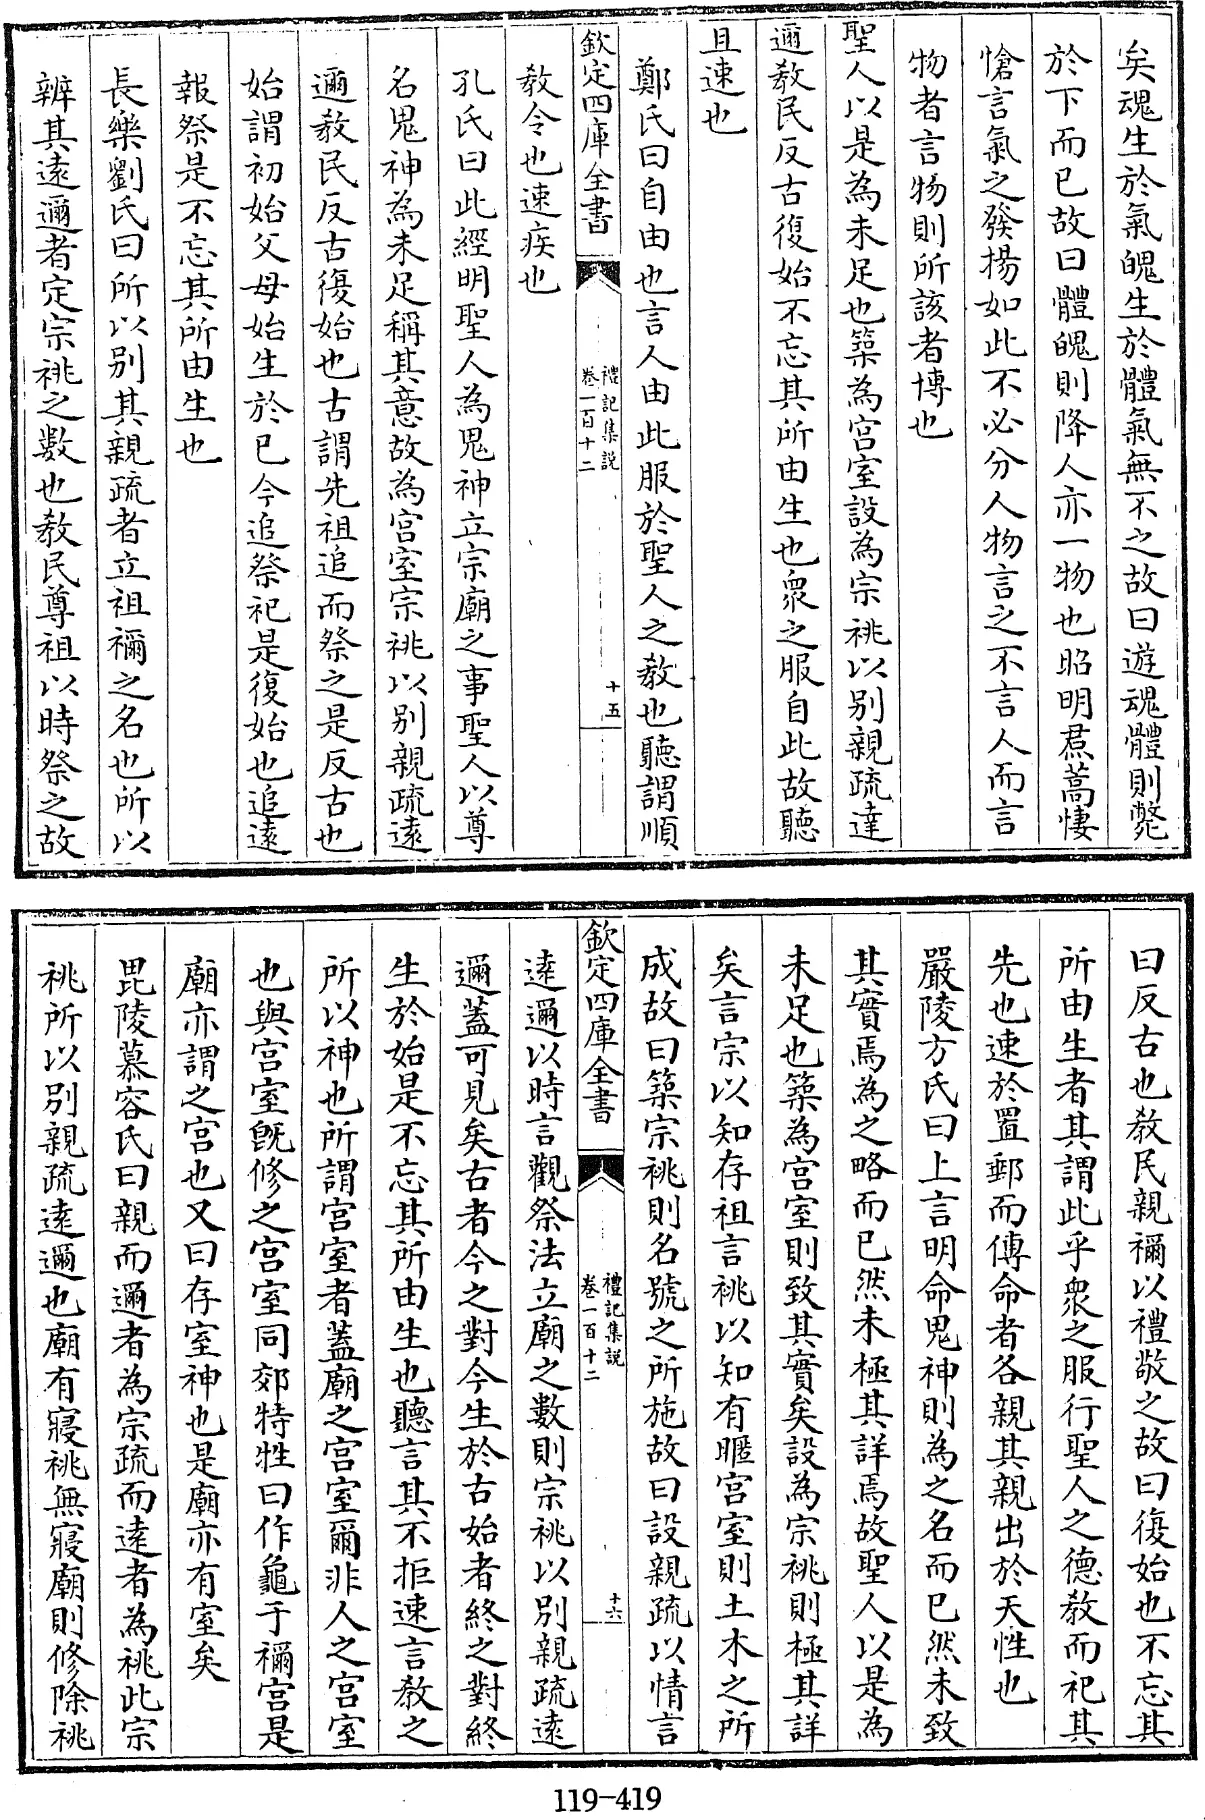 矣魂生於氣魄生於體氣無不之故曰遊魂體則斃
於下而已故曰體魄則降人亦一物也昭明焄蒿悽
愴言氣之發揚如此不必分人物言之不言人而言
物者言物則所該者博也
聖人以是為未足也築為宫室設為宗祧以别親疏逺
邇教民反古復始不忘其所由生也衆之服自此故聽
且速也
鄭氏曰自由也言人由此服於聖人之教也聽謂順
欽定四庫全書
禮記集説
卷一百十二
十五
教令也速疾也
孔氏曰此經明聖人為鬼神立宗廟之事聖人以尊
名鬼神為未足稱其意故為宫室宗祧以别親疏逺
邇教民反古復始也古謂先祖追而祭之是反古也
始謂初始父母始生於已今追祭祀是復始也追逺
報祭是不忘其所由生也
長樂劉氏曰所以别其親疏者立祖禰之名也所以
辨其逺邇者定宗祧之數也教民尊祖以時祭之故
曰反古也教民親禰以禮敬之故曰復始也不忘其
所由生者其謂此乎衆之服行聖人之德教而祀其
先也速於置郵而傳命者各親其親出於天性也
嚴陵方氏曰上言明命鬼神則為之名而已然未致
其實焉為之略而已然未極其詳焉故聖人以是為
未足也築為宫室則致其實矣設為宗祧則極其詳
矣言宗以知存祖言祧以知有曜宫室則土木之所
成故曰築宗祧則名號之所施故曰設親疏以情言
欽定四庫全書
禮記集説
卷一百十二
十六
逺邇以時言觀祭法立廟之數則宗祧以别親疏逺
邇蓋可見矣古者今之對今生於古始者終之對終
生於始是不忘其所由生也聽言其不拒速言教之
所以神也所謂宫室者蓋廟之宫室爾非人之宫室
也與宫室旣修之宫室同郊特牲曰作龜于禰宫是
廟亦謂之宫也又曰存室神也是廟亦有室矣
毘陵慕容氏曰親而邇者為宗疏而逺者為祧此宗
祧所以别親疏逺邇也廟有寢祧無寢廟則修除祧